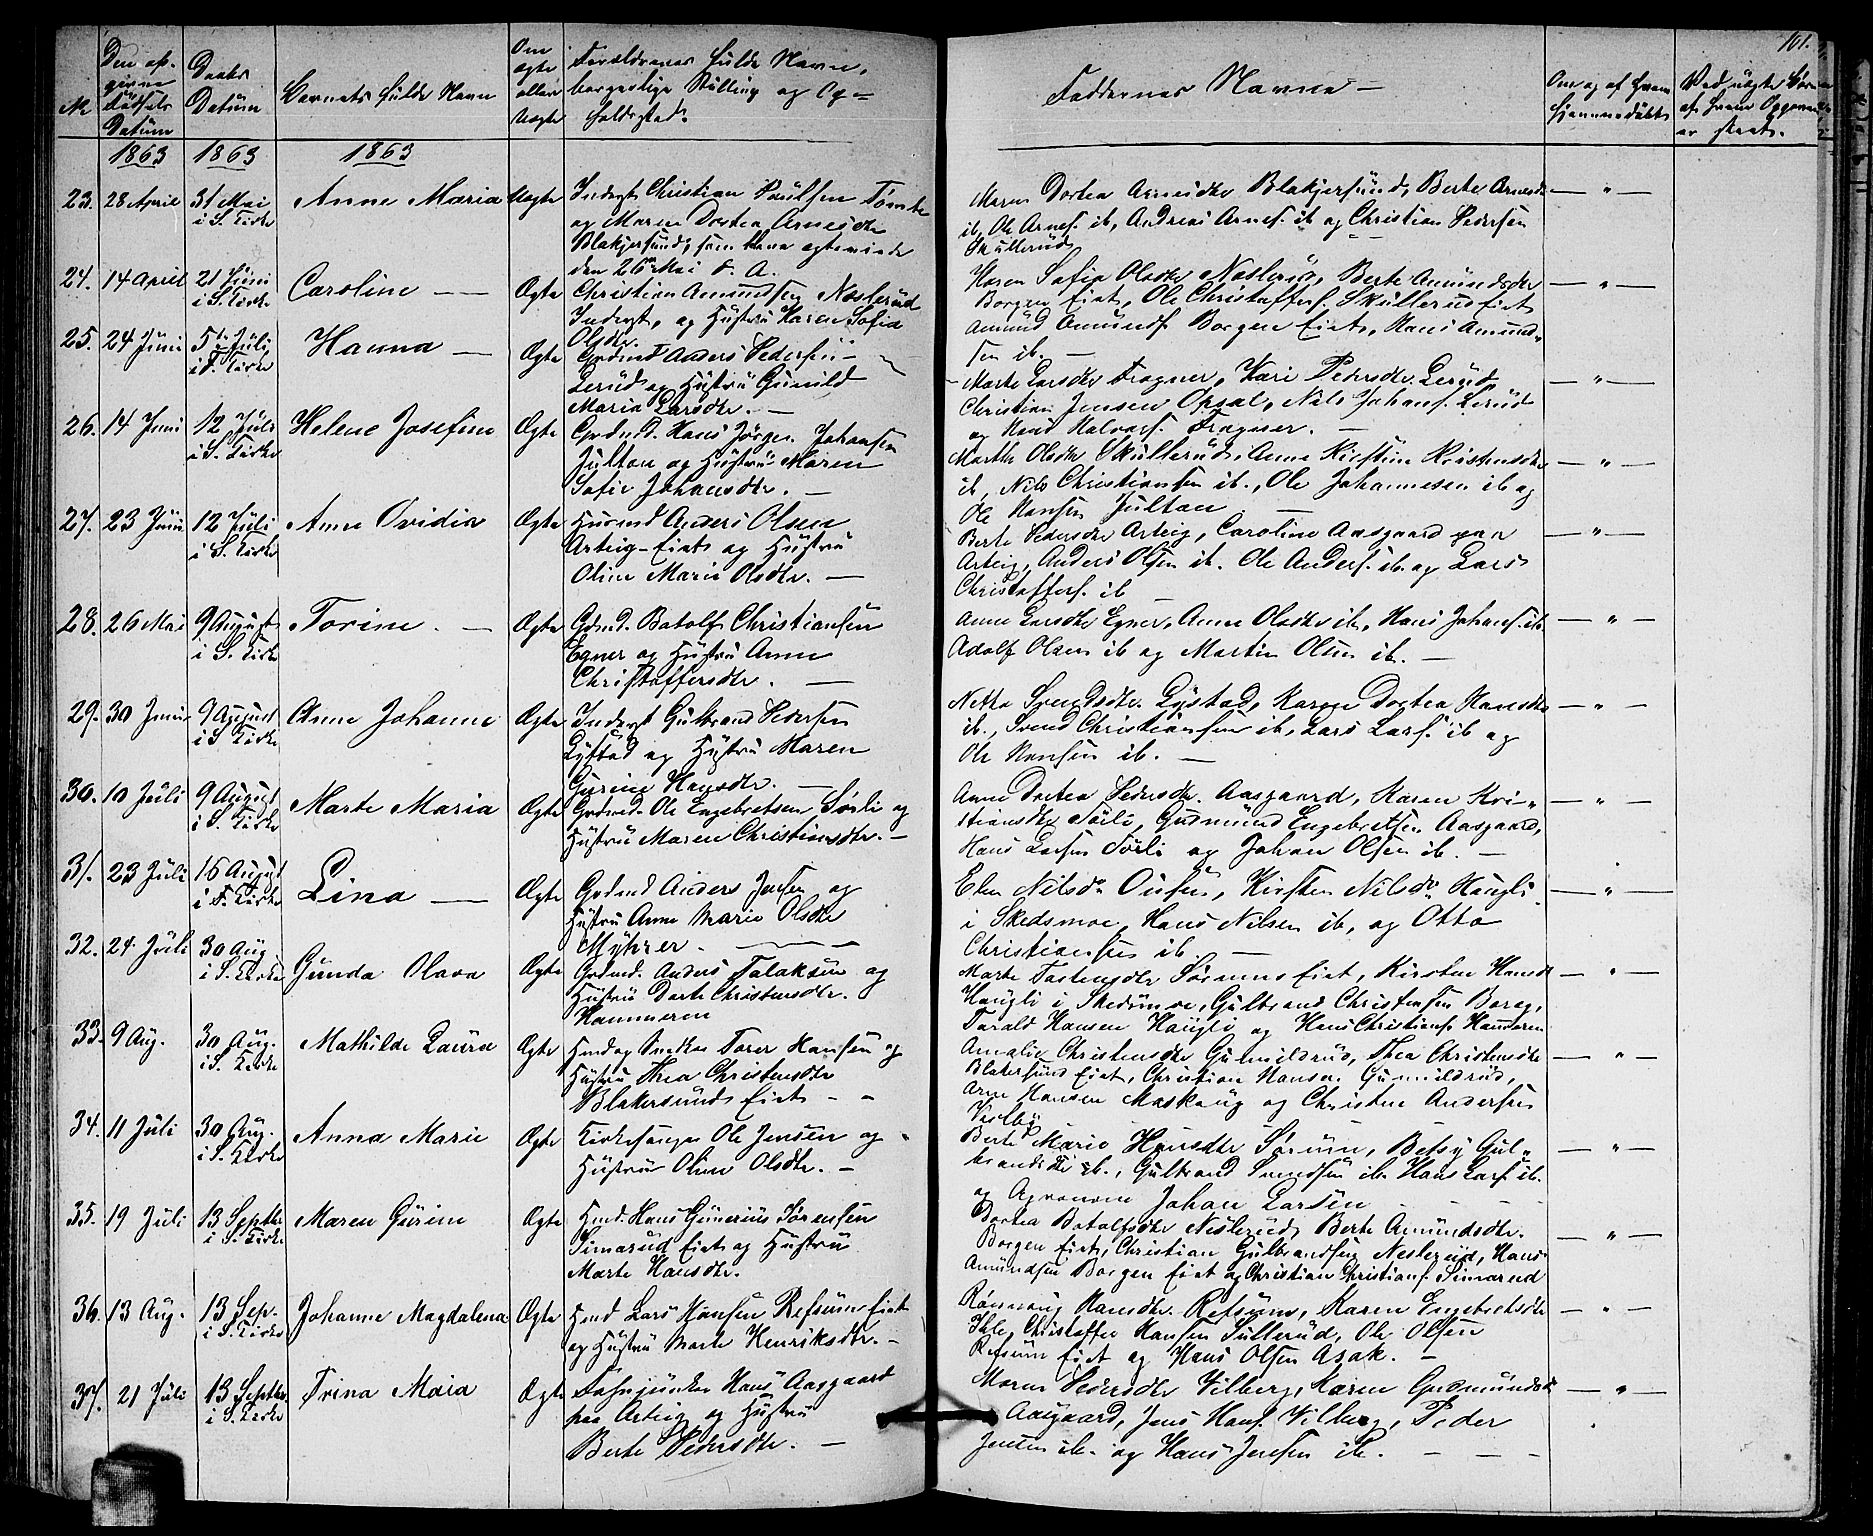 101.
N.
Den op-
givne
Fødsels
Datum
Daabs
Datum
Barnets fulde Navn
Om
ægte
eller
uægte
Forældrenes fulde Navn,
borgerlige Stilling og Op-
holdssted.
Faddernes Navne –
Om og af hvem
hjemmedøbt
Ved uægte Børn
af hvem Opgivende
er skeet.
1863 1863 1863
23. 28 April 31 Mai i S. Kirke Anne Maria Uægte
Inderst Christian Paulsen Tømte
og Maren Dortea Arnesdtr
Blakjersund, som blev ægteviede
den 26 Mai d. A.
Maren Dortea Arnesdtr Blakjersund, Berte Arnesdtr
ib, Ole Arnes. ib, Andreas Arnes. ib og Christian Pedersen
Skullerud
24. 14 April 21 Juni i S. Kirke Caroline – Ægte
Christian Amundsen Neslerud
Inderst, og Hustru Karen Sofia
Olsdtr.
Karen Sofia Olsdtr Neslerud, Berte Amundsdtr
Borgen Eiet, Ole Christoffers. Skullerud Eiet
Amund Amunds. Borgen Eiet, Hans Amund-
sen ib. –
25. 24 Juni 5te Juli i F. Kirke Hanna – Ægte
Grdmd Anders Pedersen
Lerud og Hustru Gunild
Maria Larsdtr. –
Marte Larsdtr Fragner, Kari Pedersdtr. Lerud
Christian Jensen Opsal, Nils Johans. Lerud
og Hans Halvors. Fragner. –
26. 14 Juni 12 Juli i S. Kirke Helene Josefine Ægte
Grdmd. Hans Jørgen Johansen
Jultan og Hustru Maren
Sofie Johansdtr. –
Marthe Olsdtr Skullerud, Anne Kirstine Kristensdtr
ib, Nils Christiansen ib., Ole Johannesen ib og
Ole Hansen Jultan –
27. 23 Juni 12 Juli i S. Kirke Anne Ovidia Ægte
Husmd Anders Olsen
Arteig-Eiet og Hustru
Oline Marie Olsdtr. –
Berte Pedersdtr Arteig, Caroline Aasgaard paa
Arteig, Anders Olsen ib. Ole Anders. ib og Lars
Christoffers. ib
28. 26 Mai 9 August i S. Kirke Torine. – Ægte
Grdmd. Botolf Christiansen
Egner og Hustru Anne
Christoffersdtr. –
Anne Larsdtr Egner, Anne Olsdtr ib, Hans Johans. ib
Adolf Olsen ib og Martin Olsen ib. –
29. 30 Juni 9 August i S. Kirke Anne Johanne Ægte
Inderst Gulbrand Pedersen
Lystad og Hustru Maren
Gurine Hansdtr. –
Netta Svendsdtr. Lystad, Karen Dortea Hansdtr
ib., Svend Christiansen ib, Lars Lars. ib og
Ole Hansen ib. –
30. 10 Juli 9 August i S. Kirke Marte Maria Ægte
Grdmd. Ole Engebretsen Sørli og
Hustru Maren Christiansdtr. –
Anne Dortea Pedersdtr. Aasgaard, Karen Kri-
stiansdtr Sørli, Gudmund Engebretsen Aasgaard,
Hans Larsen Sørli og Johan Olsen ib. –
31. 23 Juli 16 August i F. Kirke Lina – Ægte
Grdmd Anders Jensen og
Hustru Anne Marie Olsdtr
Myhrer. –
Elen Nilsdtr Ousen, Kirsten Nilsdtr Haugli
i Skedsmoe, Hans Nilsen ib, og Otto
Christiansen ib. –
32. 24 Juli 30 Aug i S. Kirke Gunda Olava Ægte
Grdmd. Anders Talaksen og
Hustru Dorte Christensdtr.
Hammeren
Marte Torstensdtr Sørums Eiet, Kirsten Hansdtr
Haugli i Skedsmoe, Gulbrand Christensen Borge,
Tarald Hansen Haugli og Hans Christians. Hammeren
33. 9 Aug. 30 Aug. i S. Kirke Mathilde Laura Ægte
Hmd og Snedker Torer Hansen og
Hustru Thea Christensdtr
Blakersunds Eiet – –
Amalie Christensdtr Gunnildrud, Thea Christensdtr
Blakersund Eiet, Christian Hansen Gunnildrud,
Arne Hansen Maskoug og Christen Andersen
Vestby
34. 11 Juli 30 Aug. i S. Kirke Anna Marie Ægte
Kirkesanger Ole Jensen og
Hustru Oline Olsdtr. –
Berte Marie Hansdtr Sørum, Betsy Gul-
brandsdtr ib., Gulbrand Svendsen ib. Hans Lars. ib.
og Agronom Johan Larsen
35. 19 Juli 13 Septbr. i S. Kirke Maren Gurine Ægte
Hmd. Hans Gunerius Sørensen
Simarud Eiet og Hustru
Marte Hansdtr.
Dortea Botolfsdtr Neslerud, Berte Amundsdtr.
Borgen Eiet, Christian Gulbrandsen Neslerud, Hans
Amundsen Borgen Eiet og Christian Christians. Simarud
36. 13 Aug. 13 Sep. i S. Kirke Johanne Magdalena Ægte
Hmd Lars Hansen Refsum Eiet
og Hustru Marte Henriksdtr. –
Rønnaug Hansdtr. Refsum, Karen Engebretsdtr
Ihle, Christoffer Hansen Sullerud, Ole Olsen
Refsum Eiet og Hans Olsen Asak. –
37. 21 Juli 13 Septbr. i S. Kirke Trina Maia Ægte
Fanejunker Hans Aasgaard
paa Arteig og Hustru
Berte Pedersdtr. –
Maren Pedersdtr Vilberg, Karen Gudmundsdtr
Aasgaard, Jens Hans. Vilberg, Peder
Jensen ib. og Hans Jensen ib. – – –